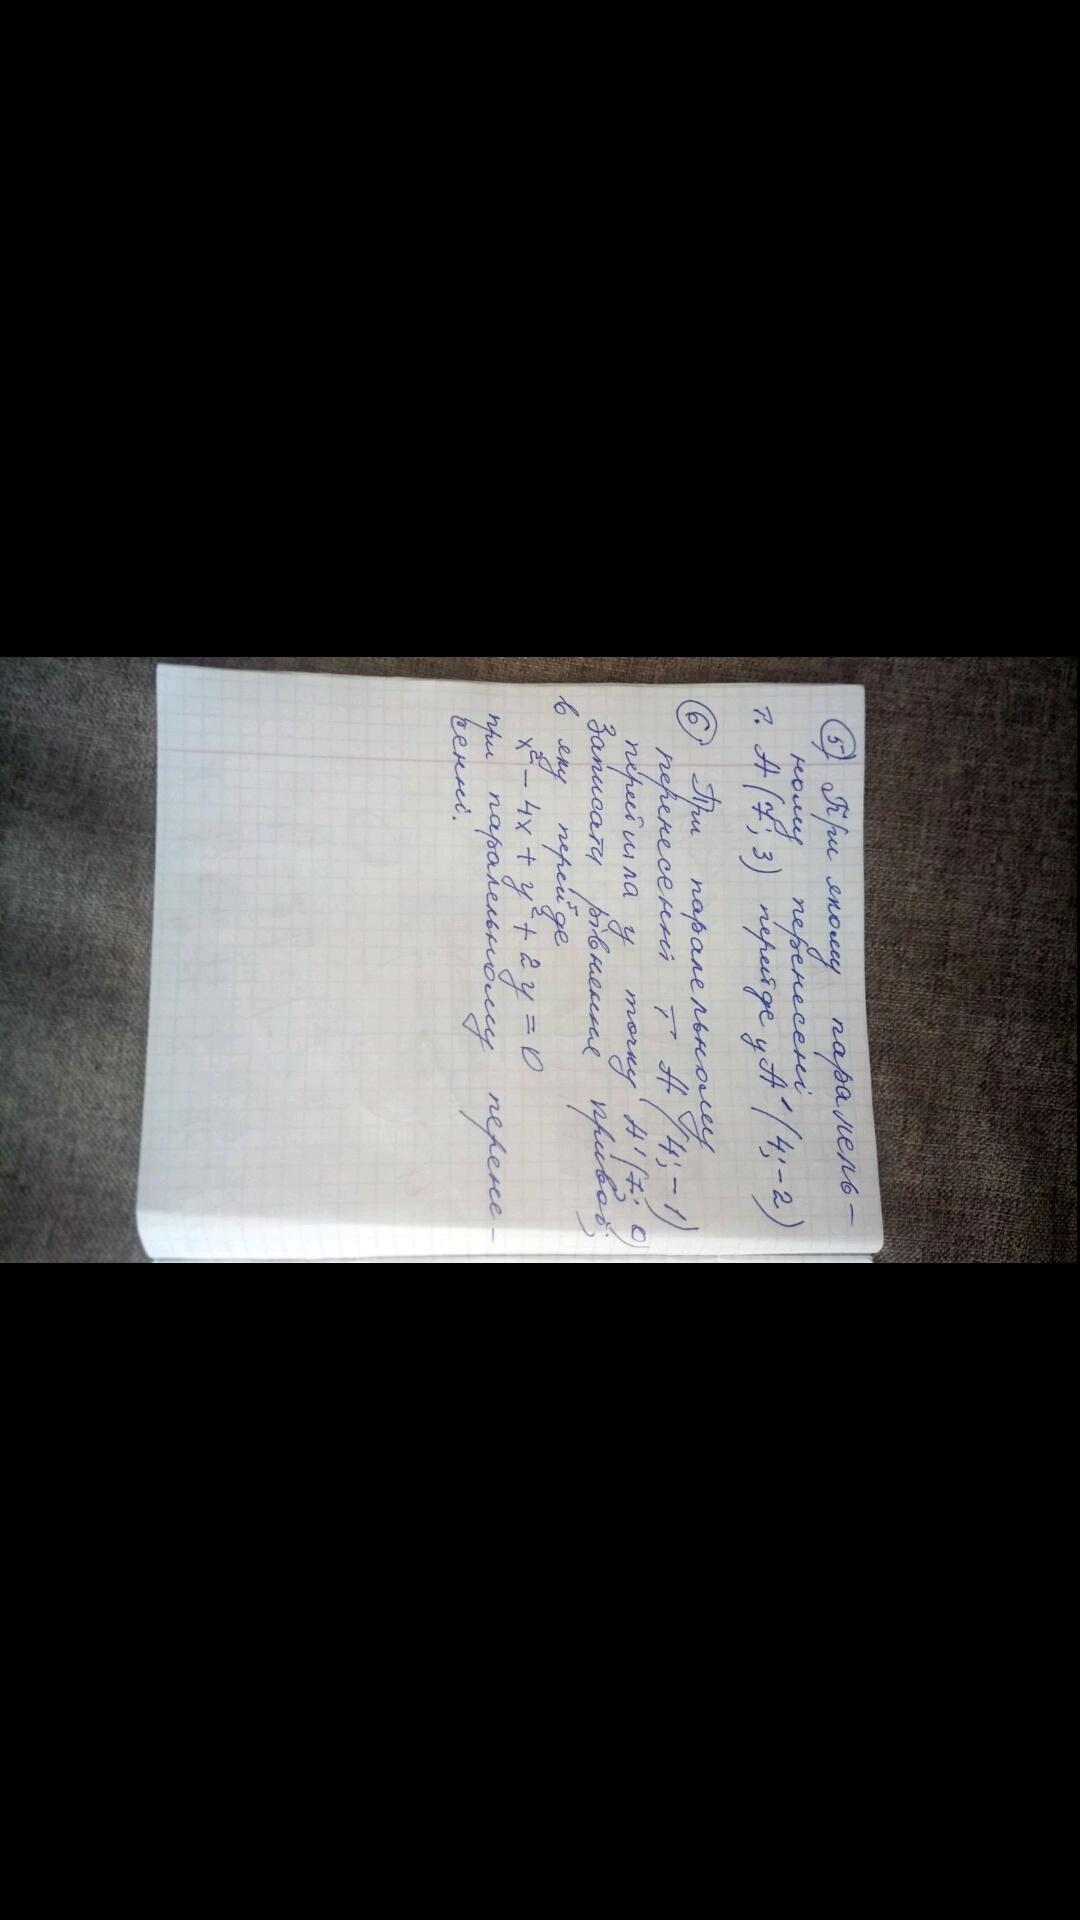 5) При якому паралель-
ному перенесені
т. А (7; 3) перейде у А' (4; -2)
6) При паралельному
перенесенні т А (4; -1)
перейшла у точку А' (7; 0)
Записати рівнення кривой.
в яку перейде
x² - 4x + y² + 2y = 0
при паралельному перене-
сенні.